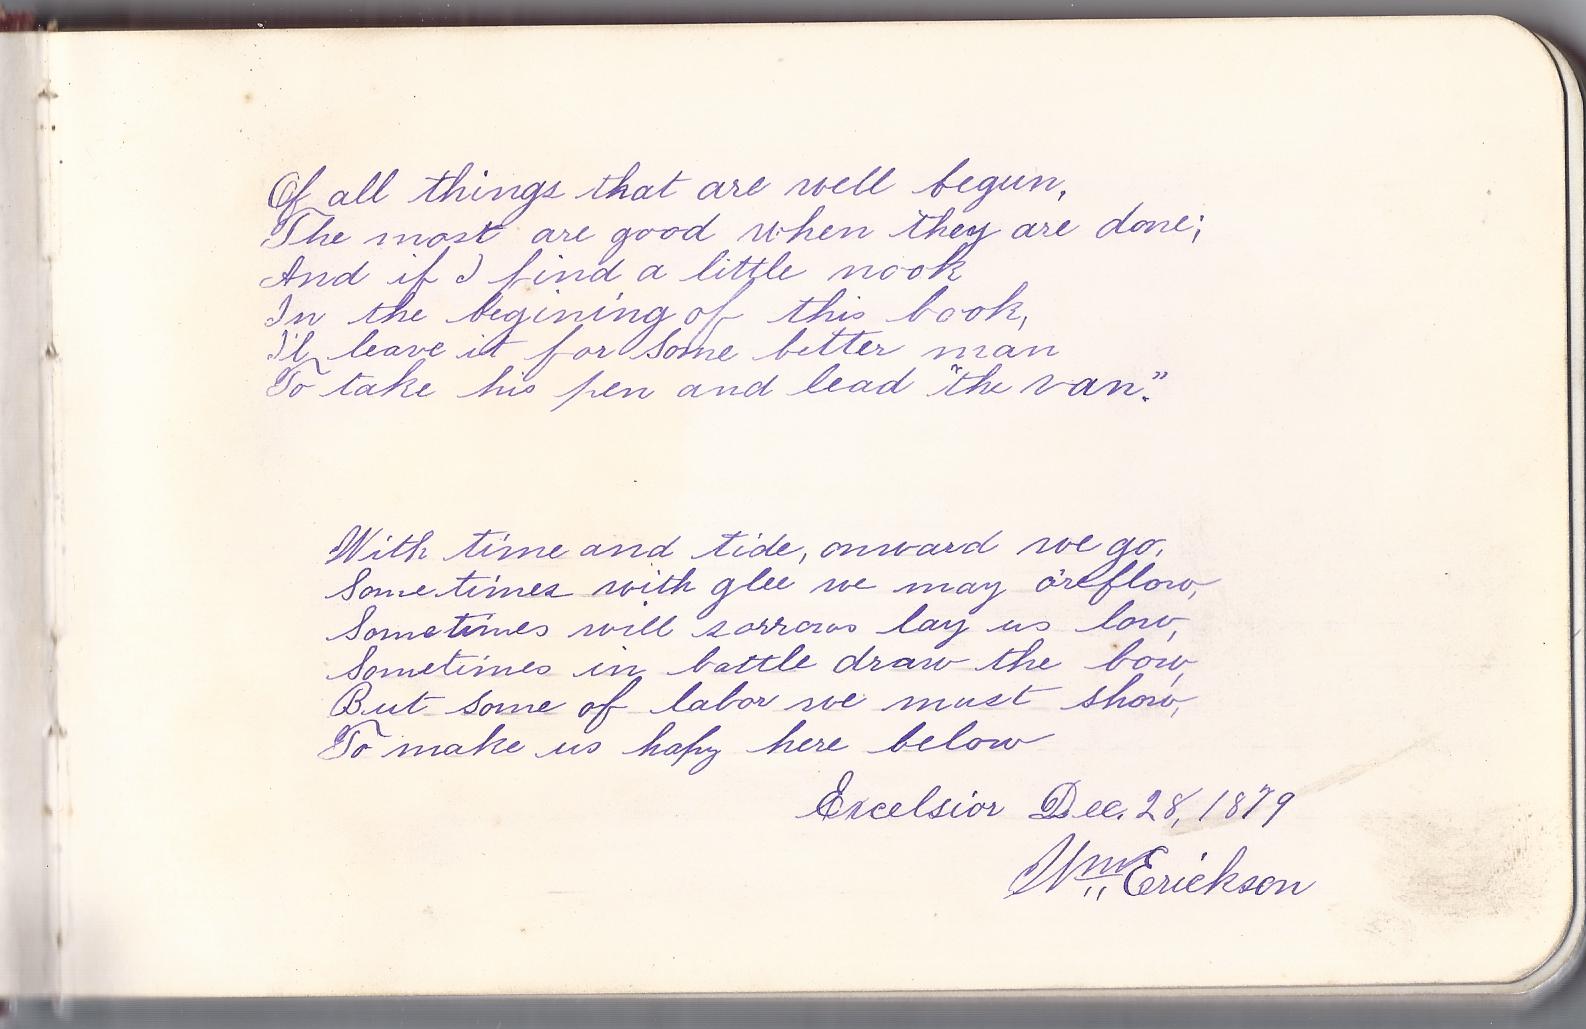 Of all things that are well begun,
The most are good when they are done;
And if I find a little nook
In the begining of this book,
I'l leave it for some better man
To take his pen and lead "the van."
With time and tide, onward we go,
Sometimes with glee we may o'reflow,
Sometimes will sorrows lay us low,
Sometimes in battle draw the bow,
But some of labor we must show,
To make us hapy here below
Excelsior Dec. 28, 1879
Wm Erickson